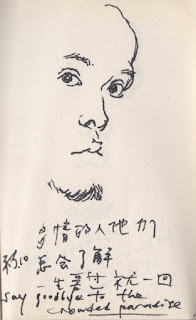 情的人他们
怎会了解
一生爱过就一回
say goodbye to the
crowded paradise